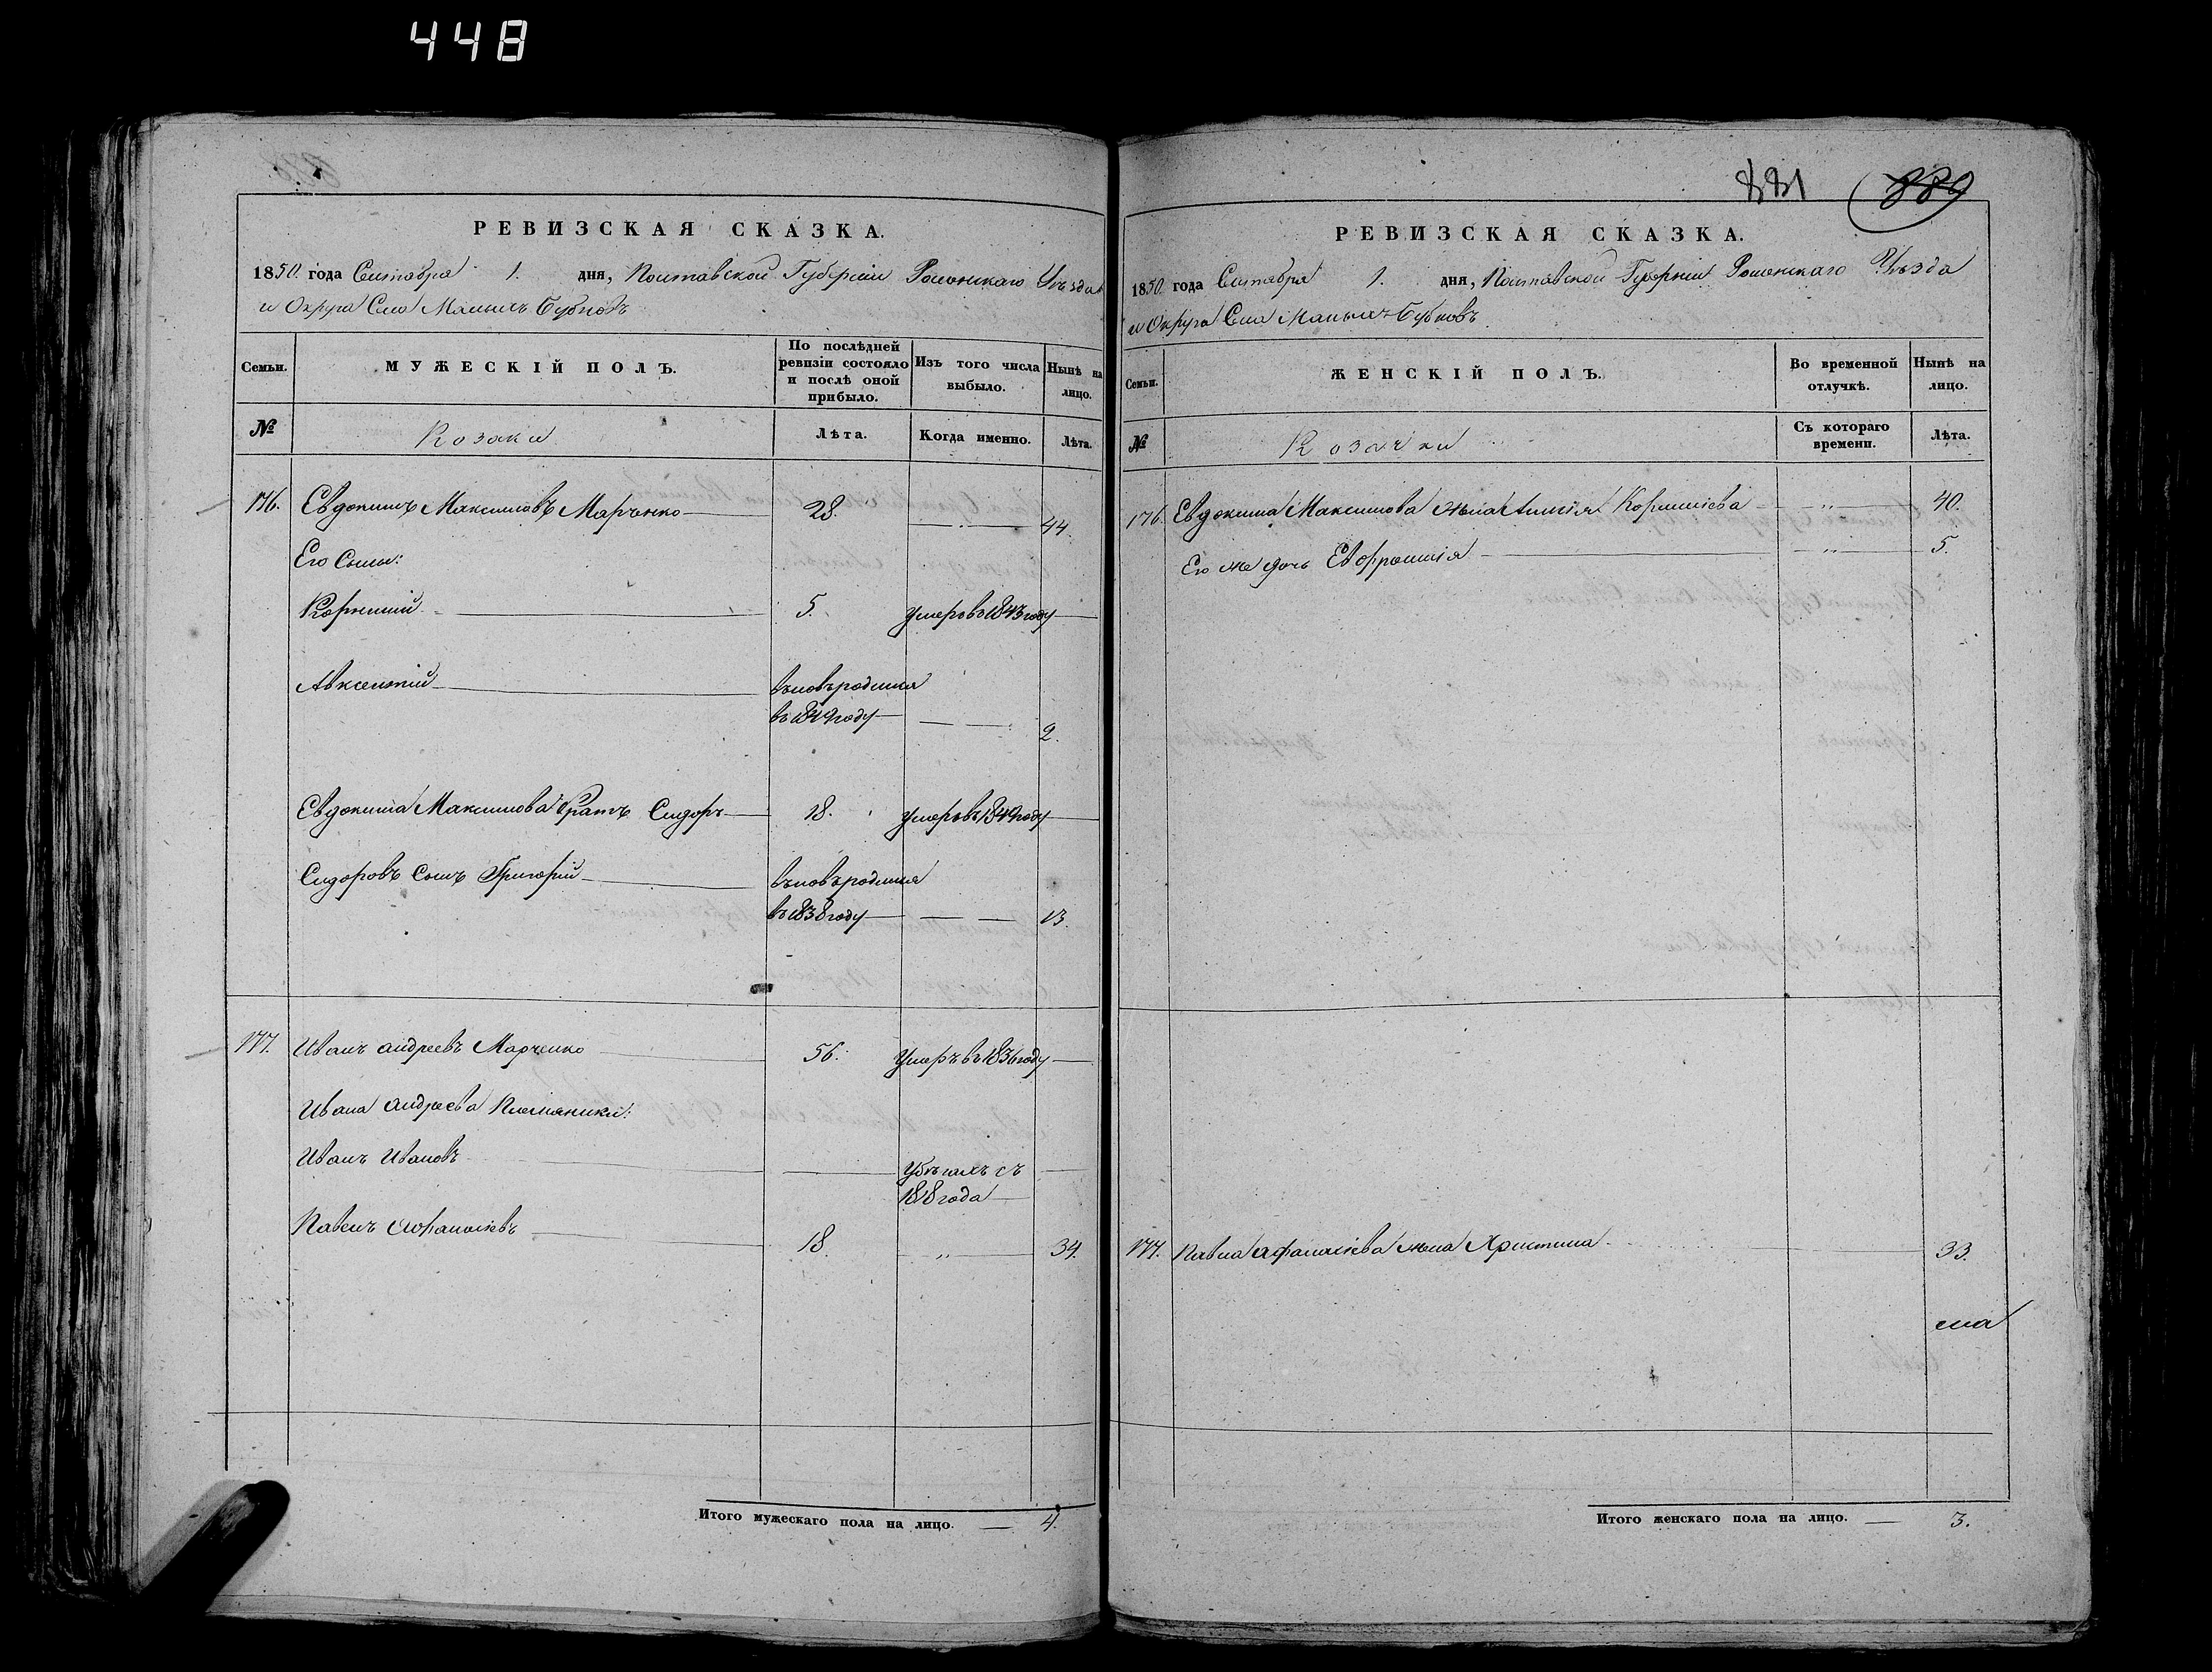 448
РЕВИЗСКАЯ СКАЗКА.
1850. года Сентября 1. дня, Полтавской Губерніи Роменскаго Уѣзда
и Округа Села Малыхъ Бубновъ
Семьи.
МУЖЕСКІЙ ПОЛЪ.
По послѣдней ревизіи состояло и послѣ оной прибыло.
Изъ того числа выбыло.
Нынѣ на лицо.
№
Козаки
Лѣта.
Когда именно.
Лѣта.
176. Евдокимъ Максимовъ Марченко 28. 44.
Его Сыны:
Корнилій 5. умеръ въ 1843 году
Авксентій вновьродился
въ 1849 году 2.
Евдокима Максимова братъ Сидоръ 18. умеръ въ 1849 году
Сидоровъ Сынъ Григорій вновьродился
въ 1838 году 13.
177. Иванъ Андреевъ Марченко 56. Умеръ въ 1836 году
Ивана Андреева Племяники:
Иванъ Ивановъ Убѣгалъ съ
1818 года
Павелъ Афанасіевъ 18. „ 34.
Итого мужескаго пола на лицо. 4.
881 889
РЕВИЗСКАЯ СКАЗКА.
1850. года Сентября 1. дня, Полтавской Губерніи Роменскаго Уѣзда
и Округа Села Малыхъ Бубновъ
Семьи.
ЖЕНСКІЙ ПОЛЪ.
Во временной отлучкѣ.
Нынѣ на лицо.
№
Козачки
Съ котораго времени.
Лѣта.
176. Евдокима Максимова жена Корниліева „ 40.
Его же дочь Евфросинія „ 5.
177. Павла Афанасіева жена Христина 33.
Итого женскаго пола на лицо. 3.